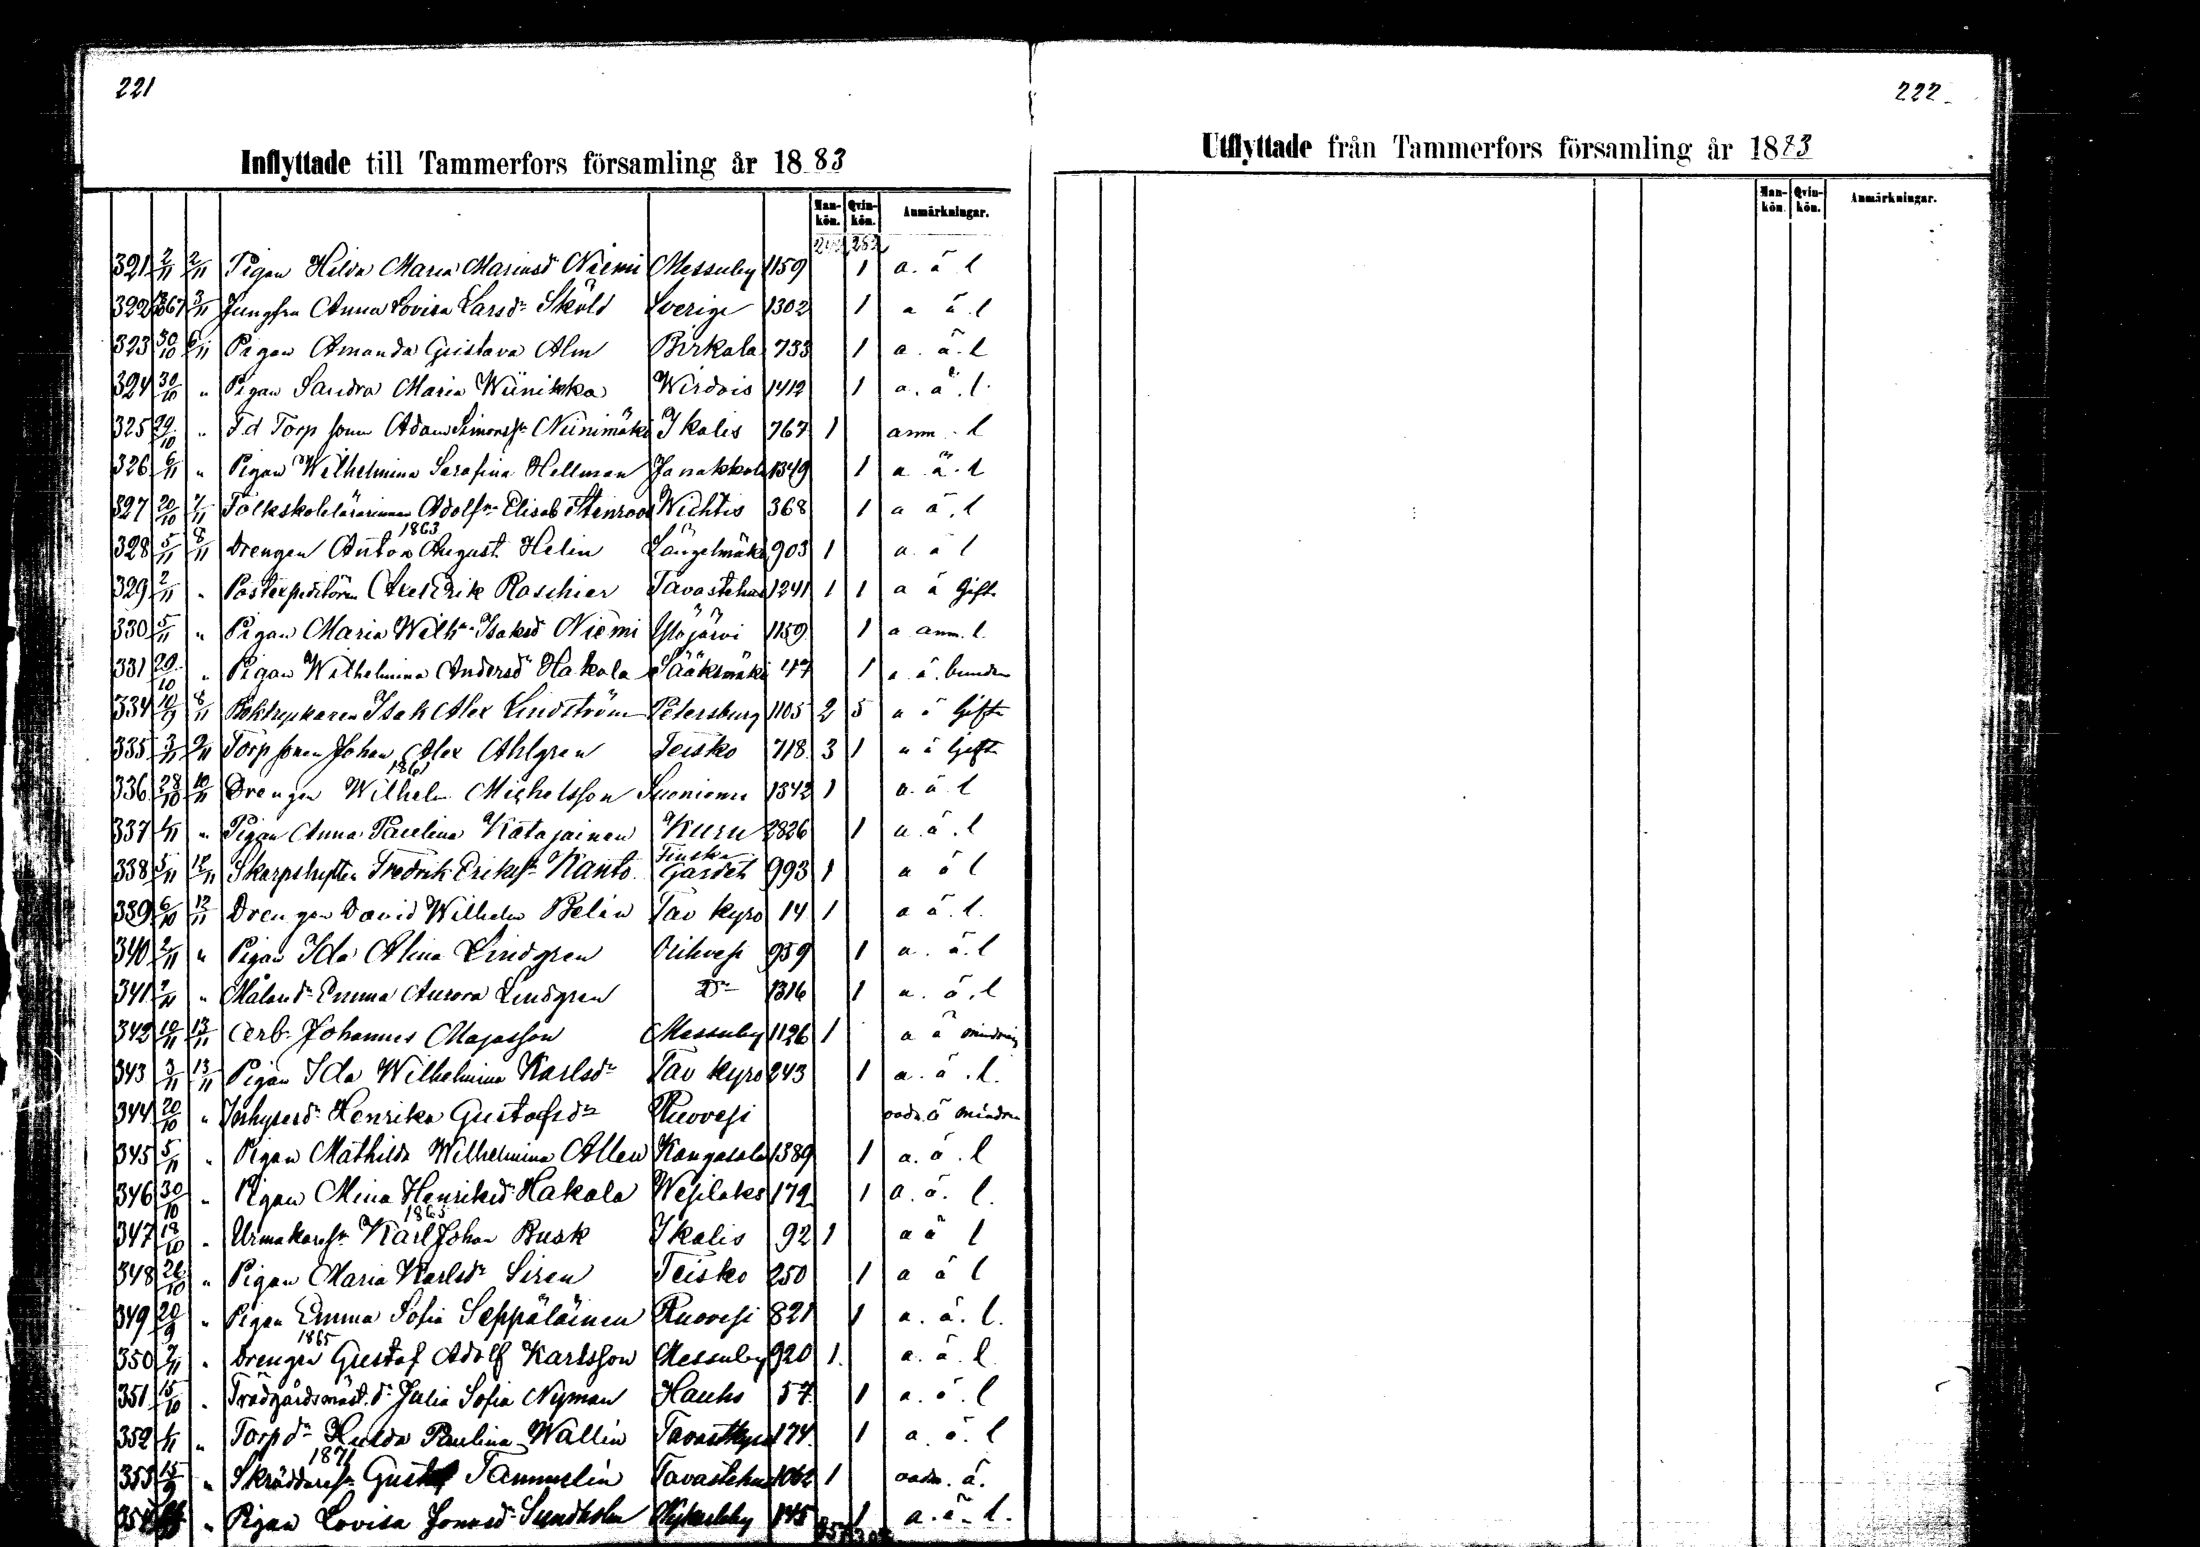 221
Inflyttade till Tammerfors församling år 1883
Man-kön. Qvin-kön. Anmärkningar.
321 2/11 2/11 Pigan Hilda Maria Mariasdr Niemi Messuby 1159 1 a. ä l
322 3/11 Jungfru Anna Lovisa Larsdr Sköld Sverige 1302 1 a ä. l
323 30/10 6/11 Pigan Amanda Gustava Alm Birkala 733 1 a. ä. l
324 30/10 " Pigan Sandra Maria Wiinikka Wirdois 1412 1 a. ä. l.
325 29/10 " F.d Torp sonen Adam Simonsson Niinimäki Ikalis 767 1 ann. l
326 6/11 " Pigan Wilhelmina Serafina Hellman Janakkala 1349 1 a ä. l
327 20/10 7/11 Folkskolelärarinnan Adolfna Elisab Stenroos Wichtis 368 1 a ä. l
1863
328 5/11 8/11 Drengen Anton August Helin Längelmäki 903 1 a. ä l
329 2/11 " Postexpeditören Axel Erik Raschier Tavastehus 1241 1 1 a ä Gift
330 5/11 " Pigan Maria Wilhna Isaksdr Niemi Ylöjärvi 1159 1 a ann. l.
331 29/10 " Pigan Wilhelmina Andersdr Hakala Sääksmäki 47 1 a ä. bunden
334 10/9 8/11 Boktryckaren Isak Alex Lindström Petersburg 1105 2 5 a ä Gift
335 3/11 9/11 Torp sonen Johan Alex Ahlgren Teisko 718 3 1 a ä Gift
1861
336 28/10 10/11 Drengen Wilhelm Michelsson Suoniemi 1342 1 a. ä. l
337 " Pigan Anna Paulina Katajainen Kuru 2826 1 a. ä. l
338 5/11 12/11 Skarpskytten Fredrik Eriksson Kanto Finska Gardet 993 1 a ä l
339 6/10 12/11 Drengen David Wilhelm Belin Tav kyro 14 1 a ä. l.
340 2/11 " Pigan Ida Alina Lindgren Orihvesi 959 1 a. ä. l
341 " Målaredr Emma Aurora Lindgren Do 1316 1 a. ä. l
342 10/11 13/11 Arb. Johannes Majasson Messuby 1126 1 a ä mindrig
343 3/11 13/11 Pigan Ida Wilhelmina Karlsdr Tav kyro 243 1 a. ä. l.
344 20/10 " Inhysesdr Henrika Gustafsdr Ruovesi oadm. ä mindre
345 5/11 " Pigan Mathilda Wilhelmina Allen Kangasala 1389 1 a. ä. l
346 30/10 " Pigan Mina Henriksdr Hakala Wesilaks 172 1 a. ä. l.
1865
347 18/10 " Urmakaresn Karl Johan Busk Ikalis 92 1 a ä l
348 26/10 " Pigan Maria Karlsdr Siren Teisko 250 1 a ä l
349 20/9 " Pigan Emma Sofia Seppäläinen Ruovesi 821 1 a. ä. l.
1865
350 7/11 " Drengen Gustaf Adolf Karlsson Messuby 920 1. a. ä. l
351 15/10 " Trädgårdsmäst. dr Julia Sofia Nyman Hauho 57 1 a. ä. l
352 " Torpdr Hulda Paulina Wallin Tavastkyro 174. 1 a. ä. l
1871
353 15/9 " Skräddaresn Gustaf Tammelin Tavastehus 1062 1 oadm. ä.
354 " Pigan Lovisa Jonasdr Sundholm Nykarleby 145 1 a. ä. l.
222
Utflyttade från Tammerfors församling år 1883
Man-kön. Qvin-kön. Anmärkningar.